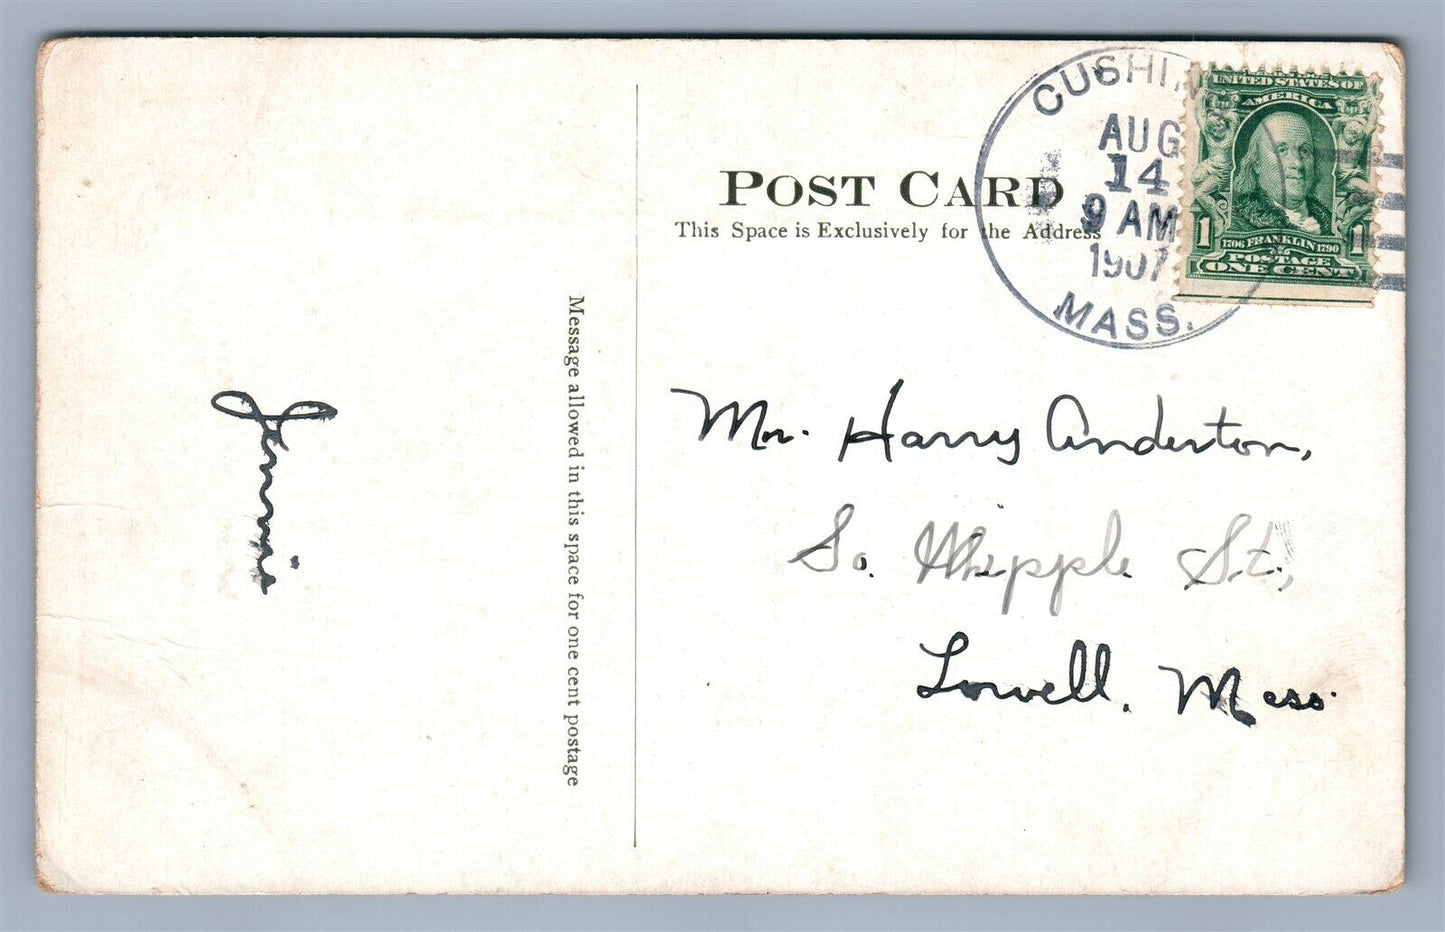 CUSHIN
AUG
14
9 AM
1907
MASS.
UNITED STATES OF
AMERICA
1 1706 FRANKLIN 1790 1
POSTAGE
ONE CENT
POST CARD
This Space is Exclusively for the Address
Message allowed in this space for one cent postage
Jennie
Mr. Harry Anderton,
So. Whipple St.,
Lowell, Mass.